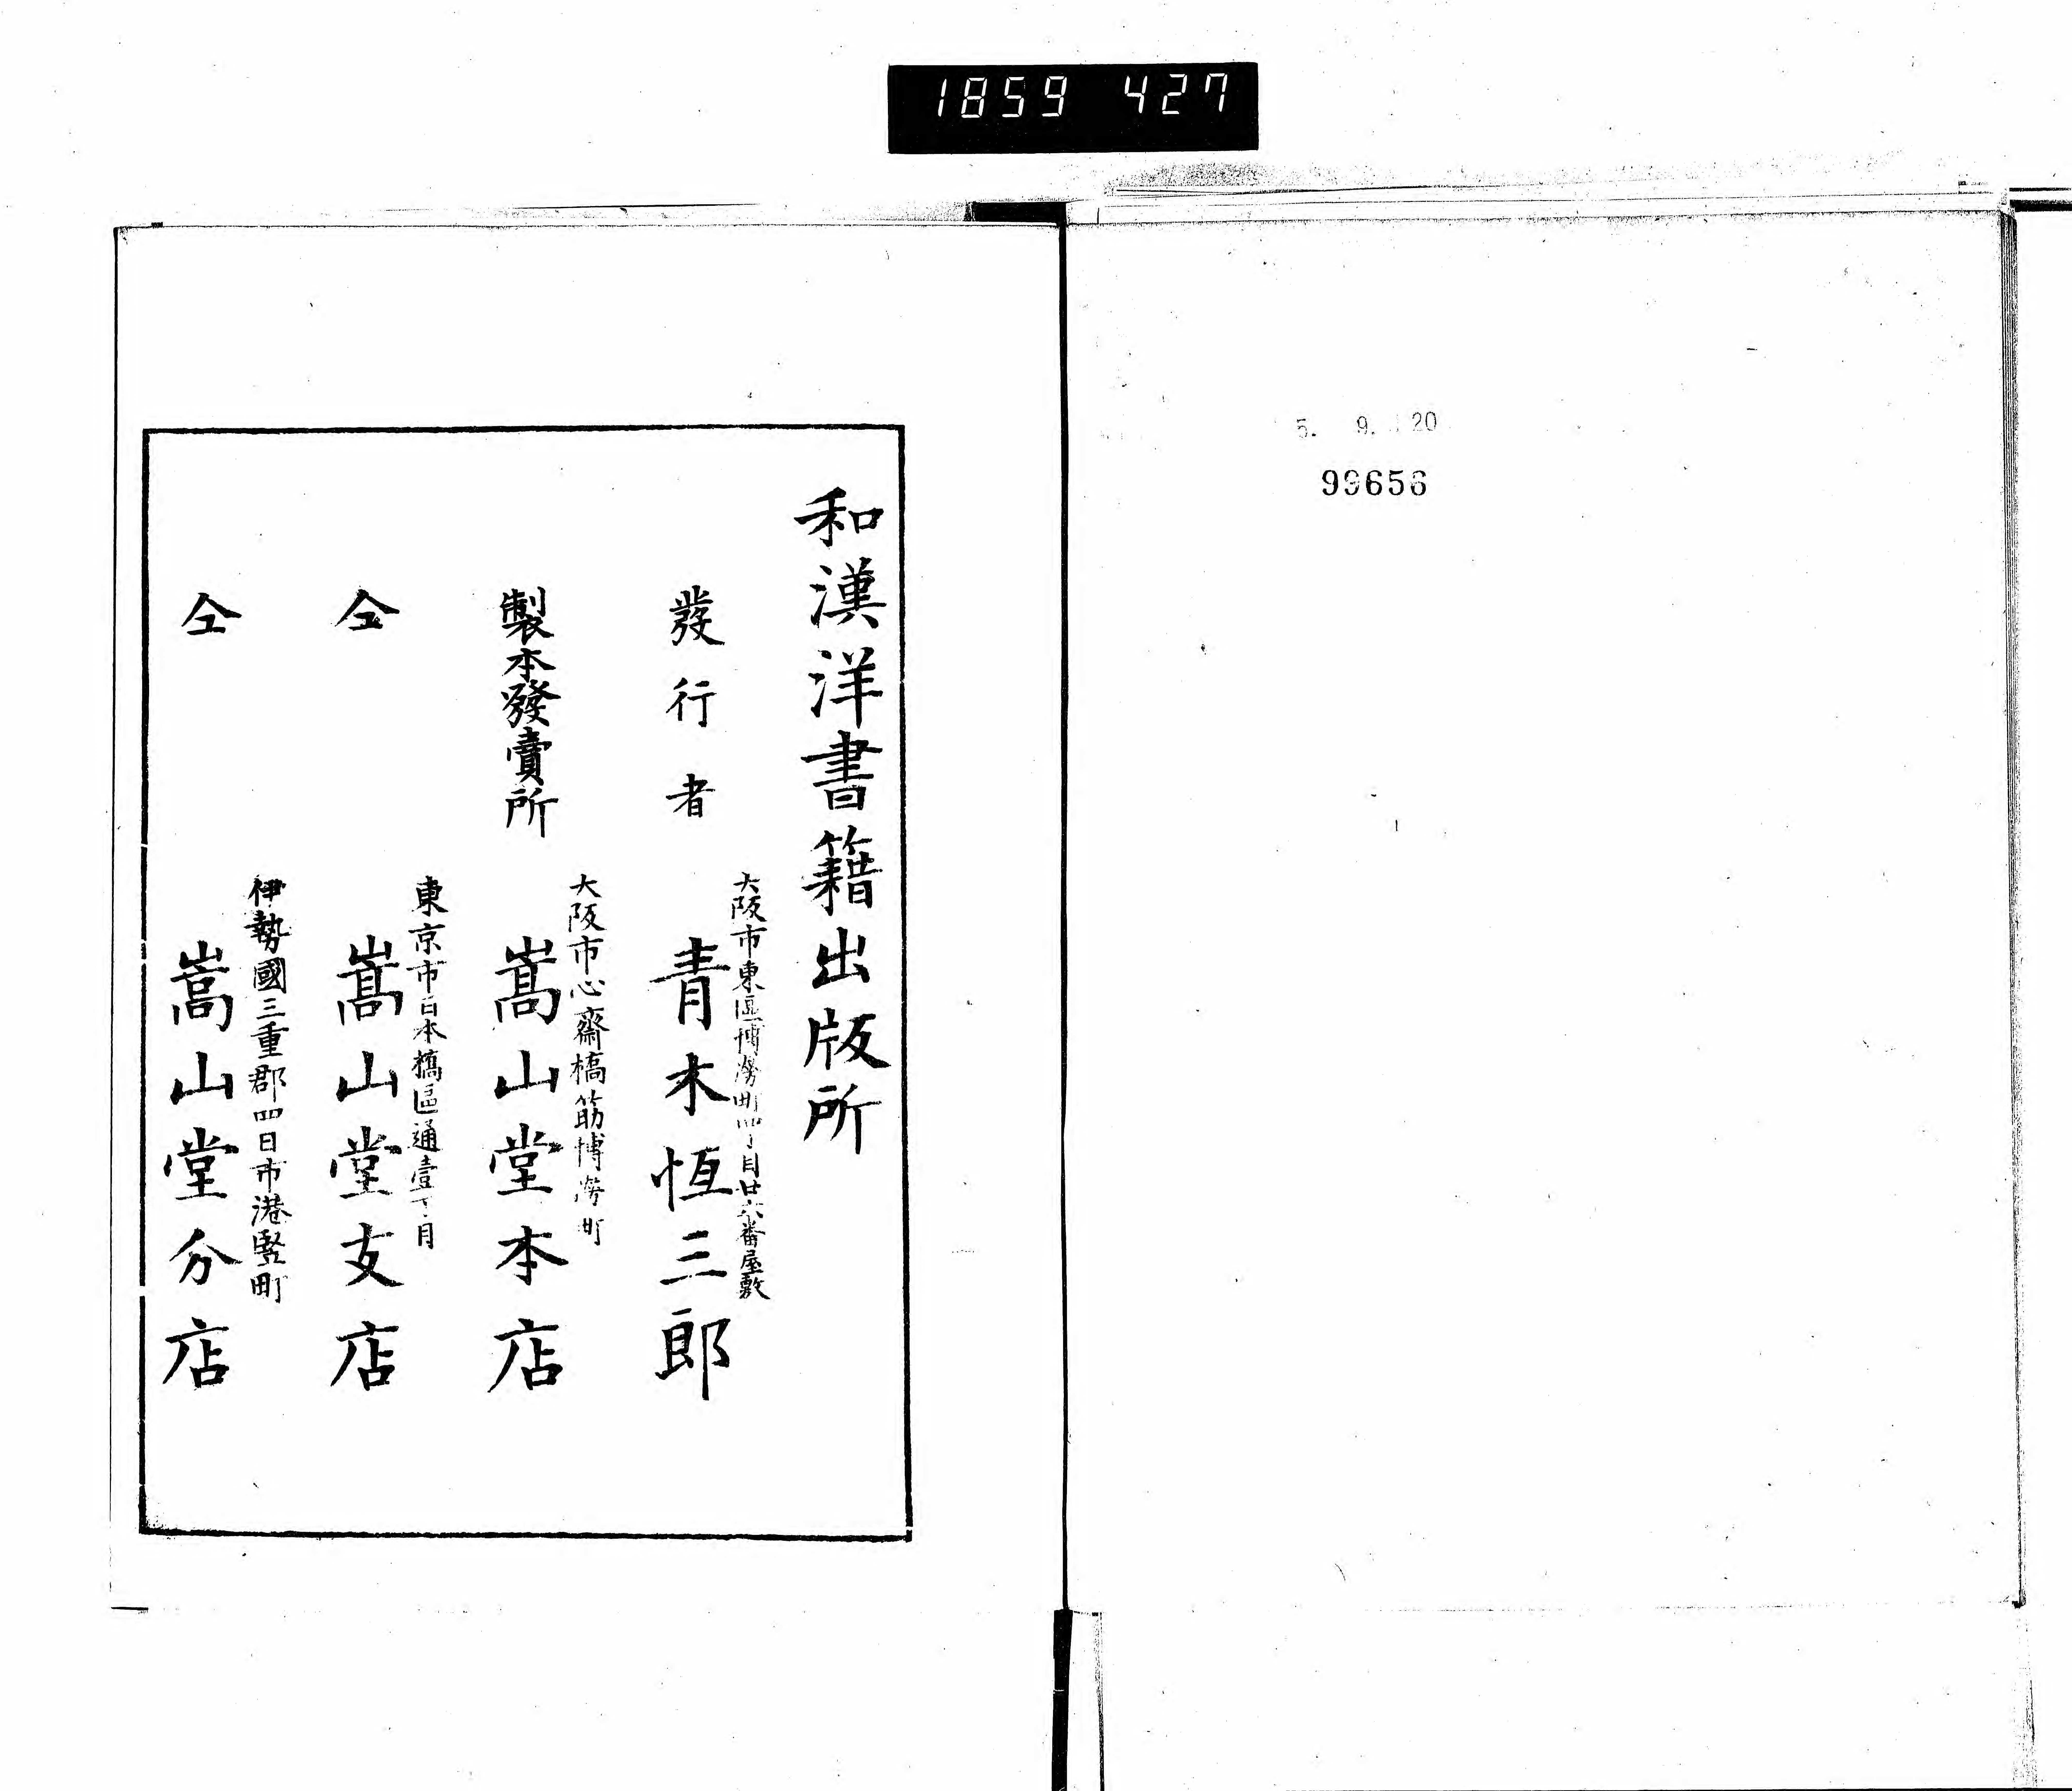 1859 427
5. 9. 20
99656
和漢洋書籍出版所
大阪市東區博勞町四丁目廿六番屋敷
發行者 青木恆三郎
大阪市心齋橋筋博勞町
製本發賣所 嵩山堂本店
東京市日本橋區通壹丁目
仝 嵩山堂支店
伊勢國三重郡四日市港竪町
仝 嵩山堂分店